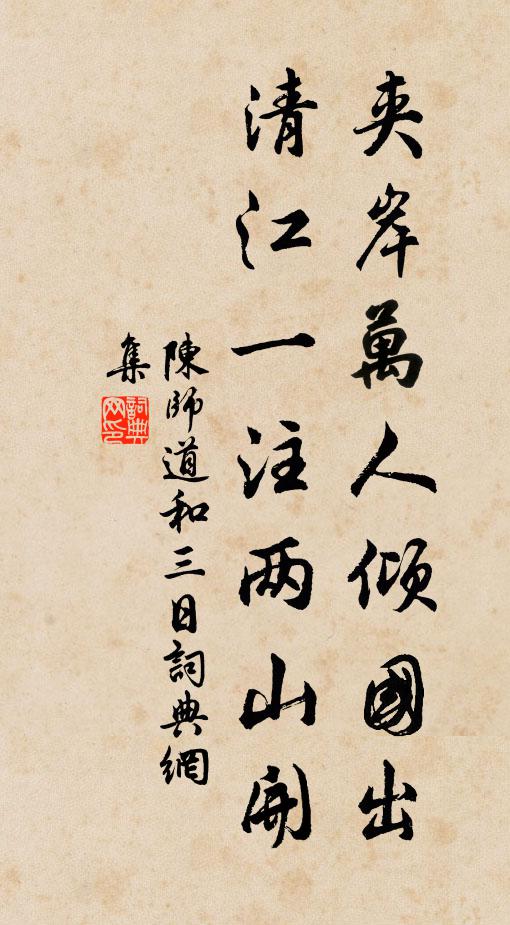 夾岸萬人傾國出
清江一注两山開
陳師道和三日詞典網
集
詞典网印